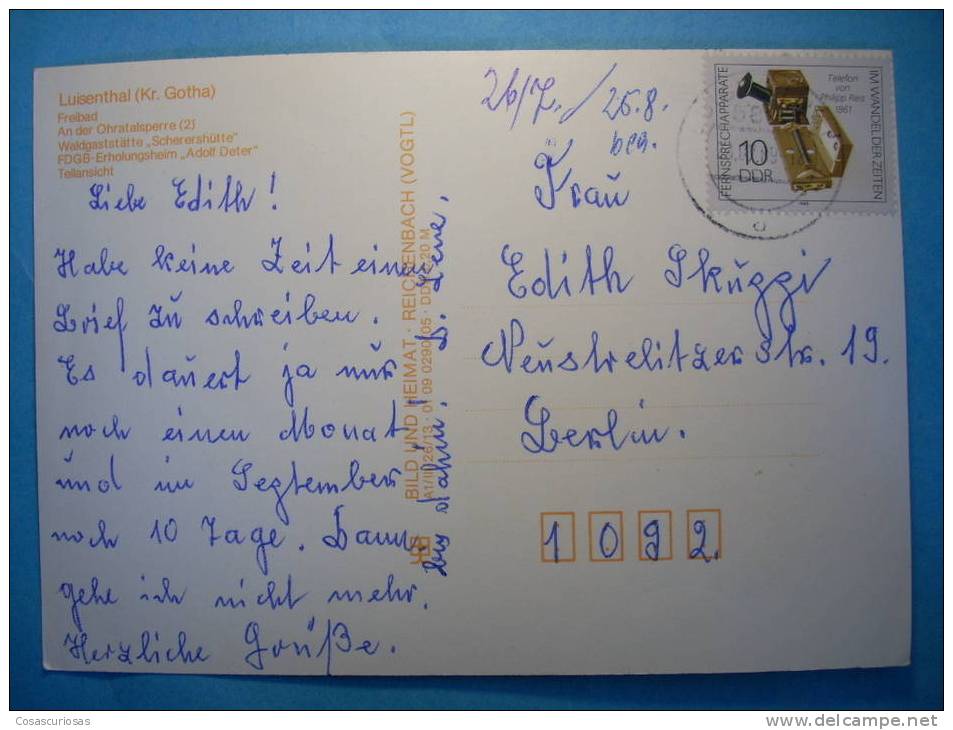 Luisenthal (Kr. Gotha)
Freibad
An der Ohratalsperre (2)
Waldgaststätte „Scherershütte"
FDGB-Erholungsheim „Adolf Deter"
Teilansicht
Liebe Edith!
Habe keine Zeit einen
Brief zu schreiben.
Es dauert ja nur
noch einen Monat
und im September
noch 10 Tage. Dann
gehe ich nicht mehr.
Herzliche Grüße.
bis dahin. D. Lene.
BILD UND HEIMAT · REICHENBACH (VOGTL)
A1/III/26/13 · 01 09 0290/05 · DDR 0,20 M
26/7. / 25.8.
Frau
Edith Skuggi
Neustrelitzer Str. 19.
Berlin.
1092.
FERNSPRECHAPPARATE
IM WANDEL DER ZEITEN
Telefon
von
Philipp Reis
1861
10
DDR
Cosascuriosas
www.delcampe.net